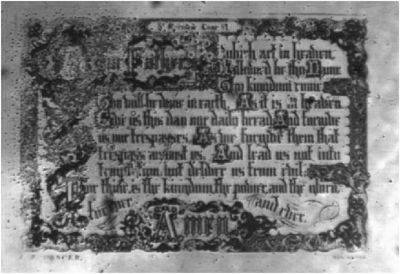 Our Father
which art in heaven,
Hallowed be thy Name
Thy kingdom come
Thy will be done in earth, As it is in heaven
Give us this day our daily bread And forgive
us our trespasses, As we forgive them that
trespass against us, And lead us not into
temptation, but deliver us from evil:
For thine is the kingdom, the power, and the glory,
for ever and ever.
Amen